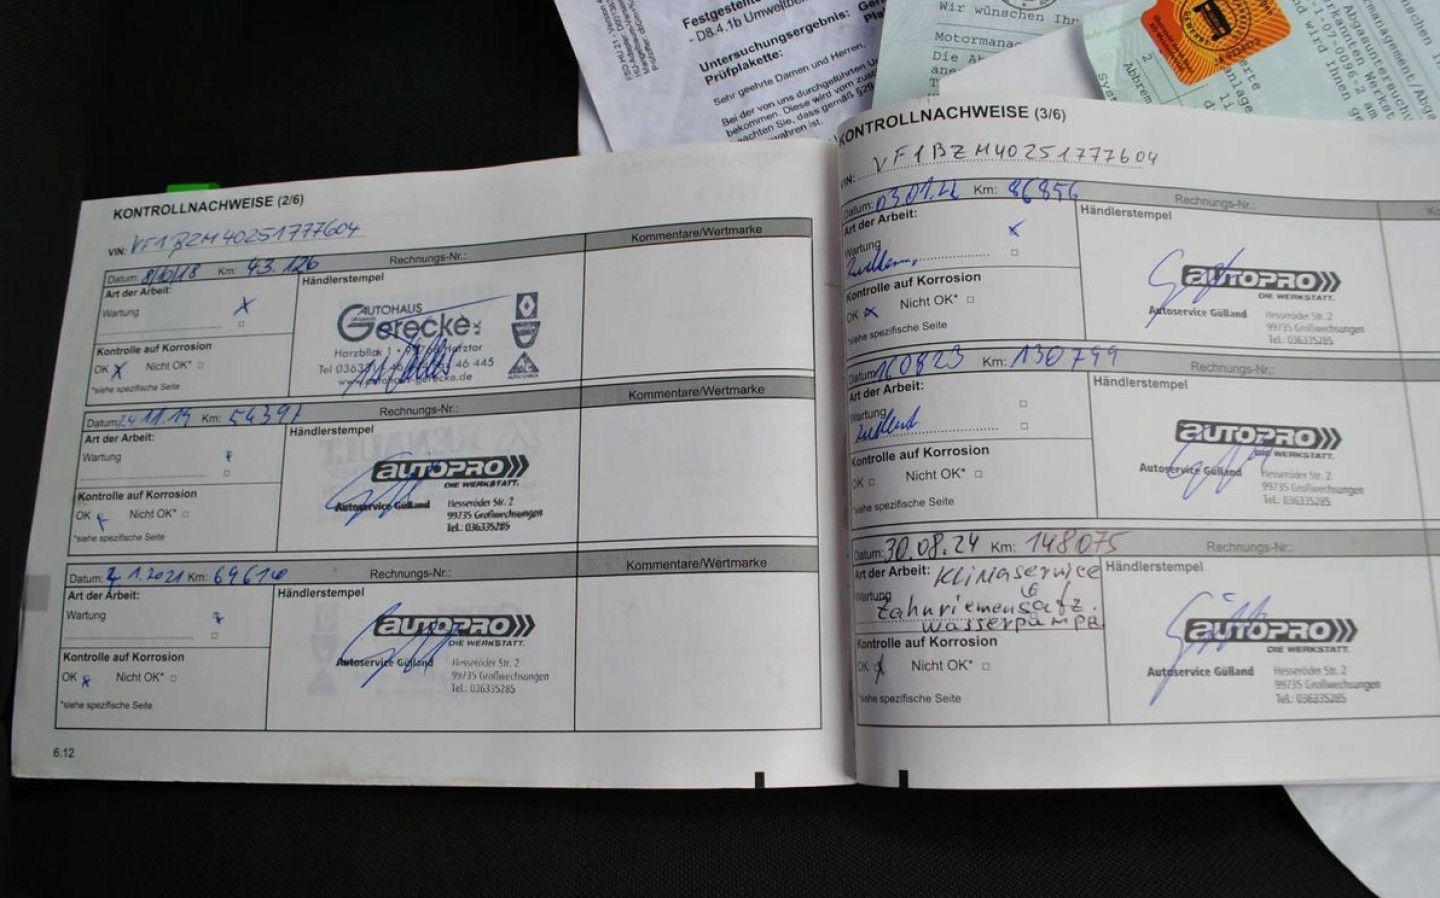 Festgestellte
- D8.4.1b Umweltbe
Untersuchungsergebnis: Ger
Prüfplakette: Pla
Sehr geehrte Damen und Herren,
Bei der von uns durchgeführten
bekommen. Diese wird vom
machten Sie, dass gemäß §29
wahren ist.
Wir wünschen Ihn
Motormana
Die
KONTROLLNACHWEISE (2/6)
VIN: VF1BZM40251777604
Datum: 8/10/18 Km: 43.126 Rechnungs-Nr.: Kommentare/Wertmarke
Art der Arbeit: Händlerstempel
Wartung X
AUTOHAUS
Gerecke
Harzblick 1
Kontrolle auf Korrosion
OK X Nicht OK*
46 445
*siehe spezifische Seite
Datum: 24.11.19 Km: 54391 Rechnungs-Nr.: Kommentare/Wertmarke
Art der Arbeit: Händlerstempel
Wartung
AUTOPRO
DIE WERKSTATT.
Kontrolle auf Korrosion
Autoservice Gülland Hesseröder Str. 2
OK Nicht OK* 99735 Großwechsungen
Tel.: 036335285
*siehe spezifische Seite
Datum: 1.2021 Km: 69610 Rechnungs-Nr.: Kommentare/Wertmarke
Art der Arbeit: Händlerstempel
Wartung
AUTOPRO
DIE WERKSTATT.
Kontrolle auf Korrosion
Autoservice Gülland Hesseröder Str. 2
OK Nicht OK* 99735 Großwechsungen
Tel.: 036335285
*siehe spezifische Seite
6.12
KONTROLLNACHWEISE (3/6)
VIN: VF1BZM40251777604
Datum: 03.01.22 Km: 86856 Rechnungs-Nr.:
Art der Arbeit: Händlerstempel
Wartung X
AUTOPRO
DIE WERKSTATT.
Kontrolle auf Korrosion
Autoservice Gülland Hesseröder Str. 2
OK X Nicht OK* 99735 Großwechsungen
Tel.: 036335285
*siehe spezifische Seite
Datum: 160823 Km: 130799 Rechnungs-Nr.:
Art der Arbeit: Händlerstempel
Wartung
AUTOPRO
DIE WERKSTATT.
Kontrolle auf Korrosion
Autoservice Gülland Hesseröder Str. 2
OK Nicht OK* 99735 Großwechsungen
Tel.: 036335285
*siehe spezifische Seite
Datum: 30.08.24 Km: 148075 Rechnungs-Nr.:
Art der Arbeit: Klimaservice Händlerstempel
Wartung
Zahnriemensatz.
wasserpumpe
AUTOPRO
DIE WERKSTATT.
Kontrolle auf Korrosion
Autoservice Gülland Hesseröder Str. 2
OK X Nicht OK* 99735 Großwechsungen
Tel.: 036335285
*siehe spezifische Seite